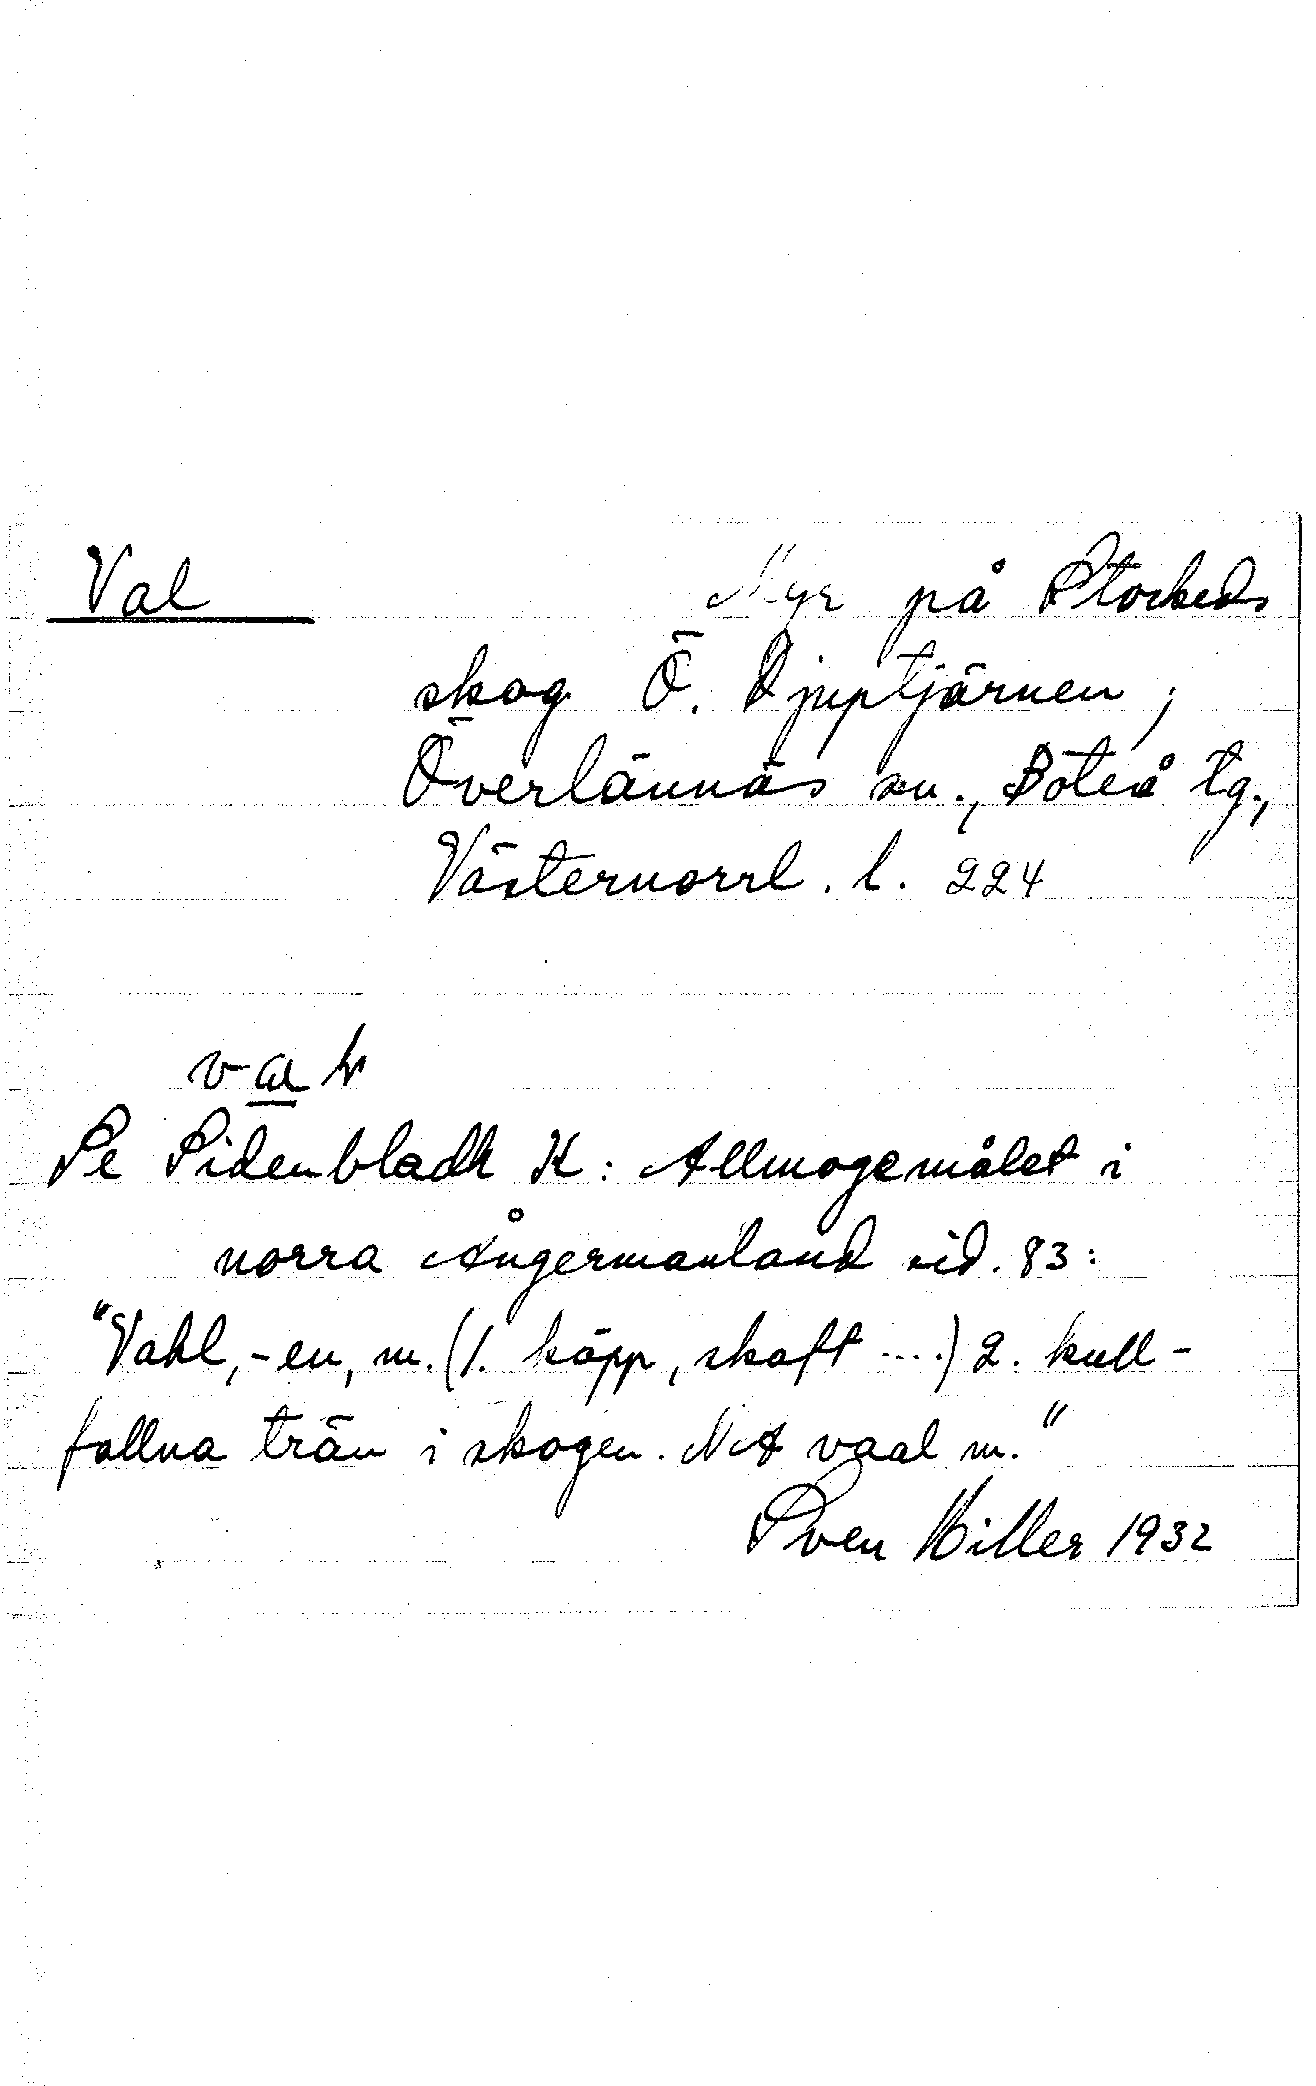 Val
Myr på Stockeds
skog Ö. Djuptjärnen ;
Överlännäs sn., Boteå tg.,
Västernorrl. l. 224
Se Sidenbladh K: Allmogemålet i
norra Ångermanland sid. 83:
"Vahl, -en, m. (1. käpp, skaft ....) 2. kull-
fallna trän i skogen. NA vaal m."
Sven Hiller 1932